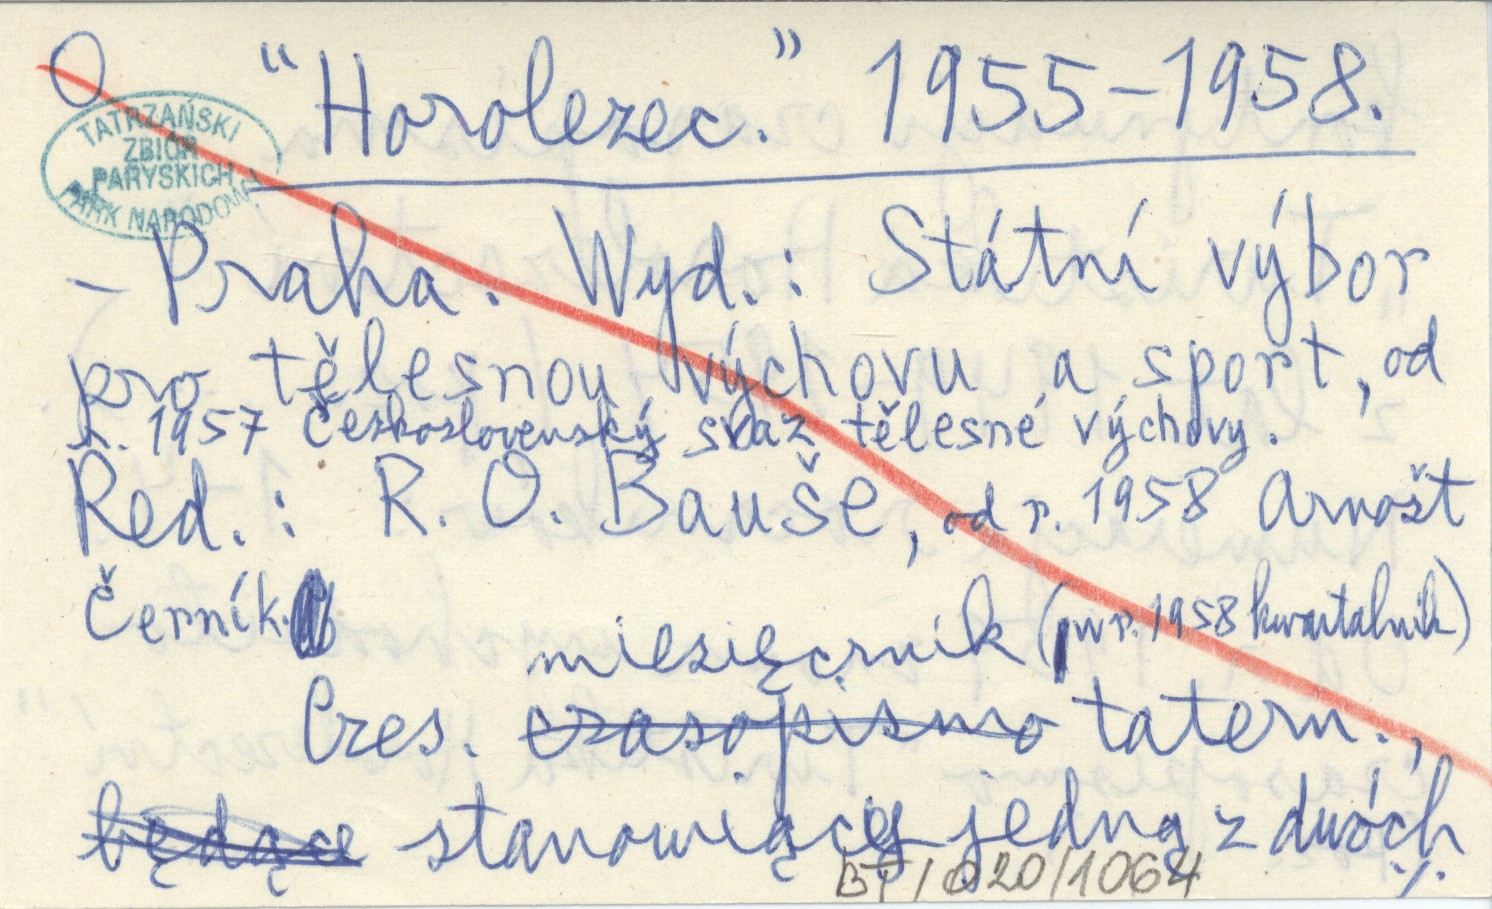 O "Horolezec." 1955-1958.
TATRZAŃSKI
ZBIÓR
PARYSKICH
PARK NARODOWY
- Praha. Wyd.: Státní výbor
pro tělesnou výchovu a sport, od
r. 1957 Československý svaz tělesné výchovy.
Red.: R. O. Bauše, od r. 1958 Arnošt
Černík.
miesięcznik (w r. 1958 kwartalnik)
Czes. czasopismo tatern.,
będące stanowiący jedną z dwóch
./.
BT/020/1064